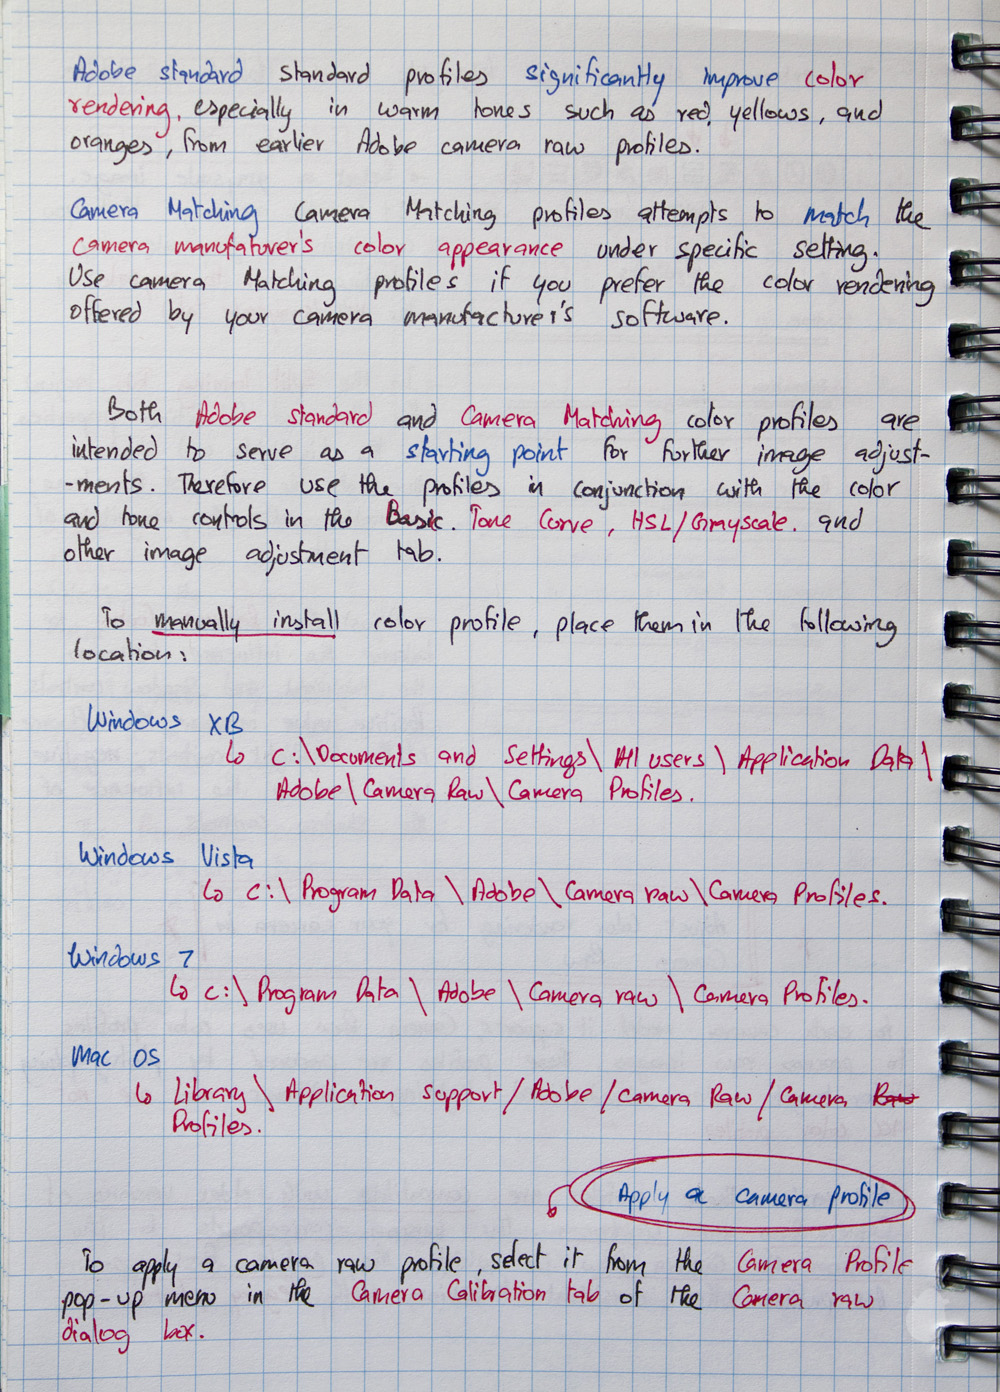 Adobe standard standard profiles significantly improve color
rendering, especially in warm tones such as red, yellows, and
oranges, from earlier Adobe camera raw profiles.
Camera Matching Camera Matching profiles attempts to match the
camera manufaturer's color appearance under specific setting.
Use camera Matching profiles if you prefer the color rendering
offered by your camera manufacturer's software.
Both Adobe standard and Camera Matching color profiles are
intended to serve as a starting point for further image adjust-
-ments. Therefore use the profiles in conjunction with the color
and tone controls in the Basic. Tone Curve, HSL/Grayscale. and
other image adjustment tab.
To manually install color profile, place them in the following
location:
Windows XB
↳ C:\Documents and Settings\All users\Application Data\
Adobe\Camera Raw\Camera Profiles.
Windows Vista
↳ C:\Program Data\Adobe\Camera raw\Camera Profiles.
Windows 7
↳ C:\Program Data\Adobe\Camera raw\Camera Profiles.
Mac OS
↳ Library\Application support/Adobe/camera Raw/Camera Raw
Profiles.
Apply a camera profile
To apply a camera raw profile, select it from the Camera Profile
pop-up menu in the Camera Calibration tab of the Camera raw
dialog box.